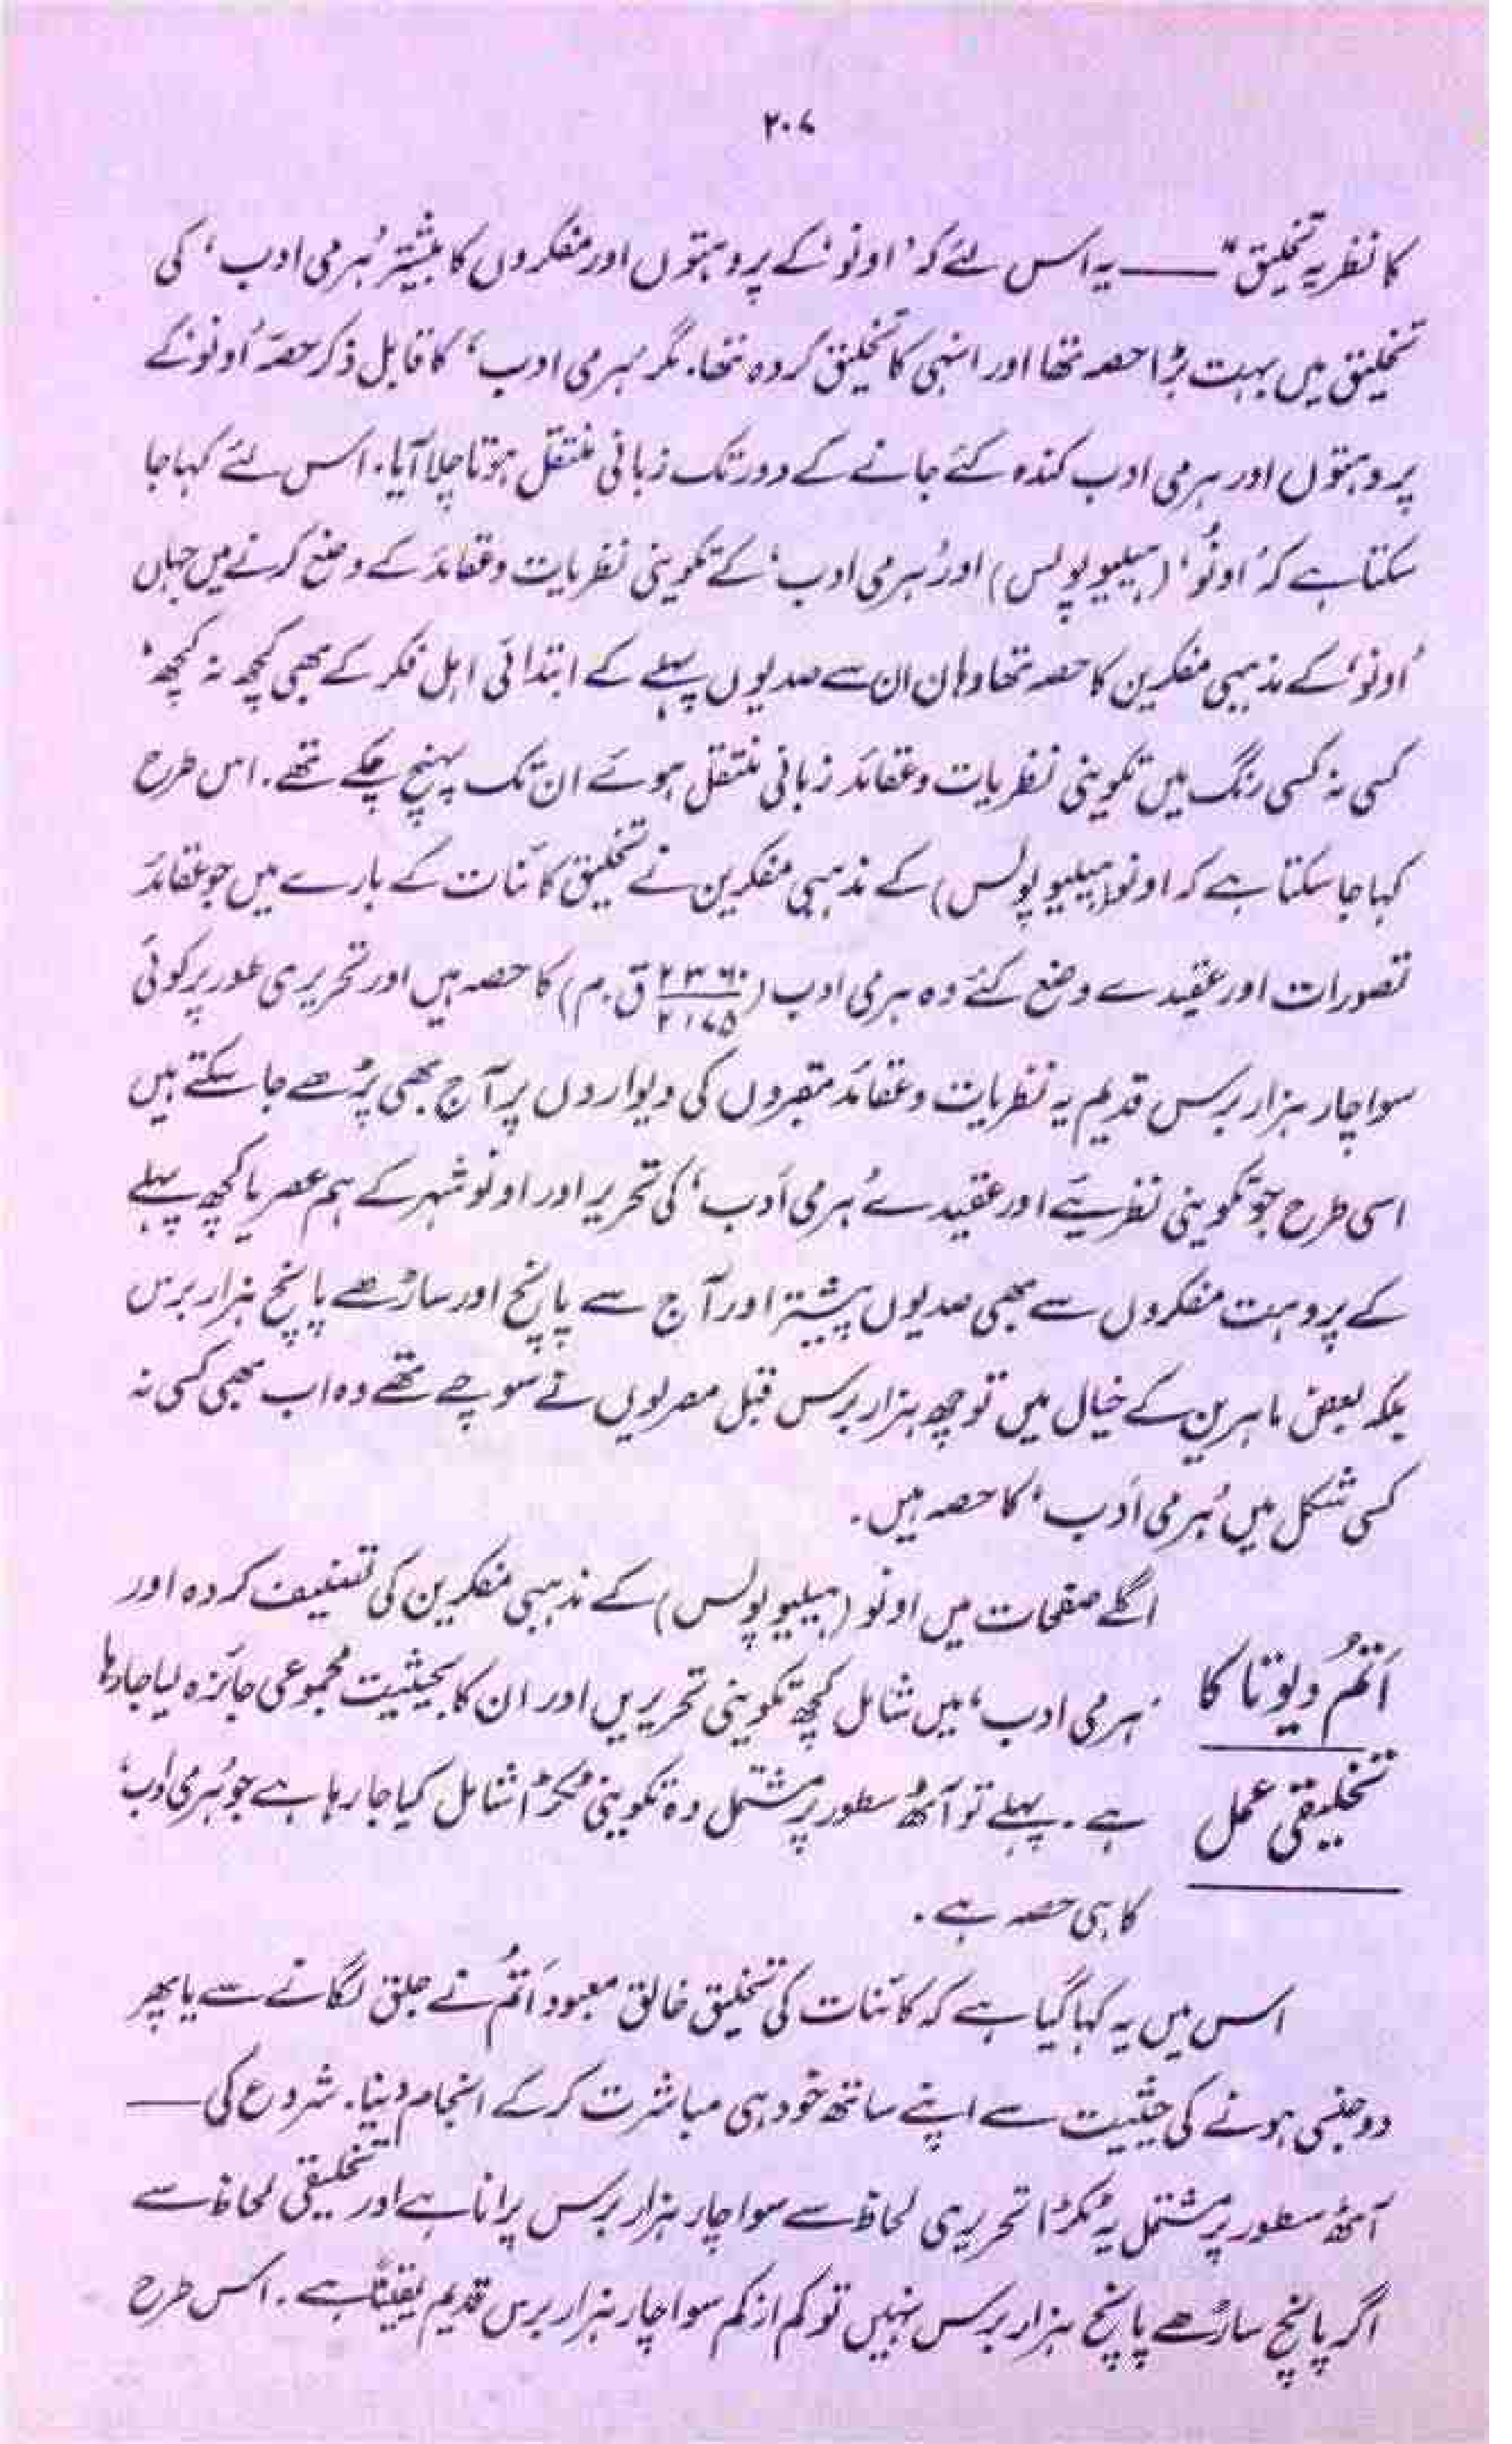 ۲۰۷
کا نظریہ تخلیق" ——— یہ اس لئے کہ 'اونو' کے پروہتوں اور مفکروں کا بیشتر 'ہرمی ادب' کی
تخلیق میں بہت بڑا حصہ تھا اور انہی کا تخلیق کردہ تھا۔ مگر 'ہرمی ادب' کا قابل ذکر حصہ 'اونو' کے
پروہتوں اور ہرمی ادب کندہ کئے جانے کے دور تک زبانی منتقل ہوتا چلا آیا۔ اس لئے کہا جا
سکتا ہے کہ 'اونو' (ہیلیوپولس) اور 'ہرمی ادب' کے تکوینی نظریات و عقائد کے وضع کرنے میں جہاں
'اونو' کے مذہبی مفکرین کا حصہ تھا وہاں ان سے صدیوں پہلے کے ابتدائی اہل فکر کے بھی کچھ نہ کچھ'
کسی نہ کسی رنگ میں تکوینی نظریات و عقائد زبانی منتقل ہوئے ان تک پہنچ چکے تھے۔ اس طرح
کہا جا سکتا ہے کہ اونو (ہیلیوپولس) کے مذہبی مفکرین نے تخلیق کائنات کے بارے میں جو عقائد
تصورات اور عقیدے وضع کئے وہ ہرمی ادب (۲۳۶۰/۲۱۷۵ ق۔م) کا حصہ ہیں اور تحریری طور پر کوئی
سوا چار ہزار برس قدیم یہ نظریات و عقائد مقبروں کی دیواروں پر آج بھی پڑھے جا سکتے ہیں
اسی طرح جو تکوینی نظریئے اور عقیدے 'ہرمی ادب' کی تحریر اور اونو شہر کے ہم عصر یا کچھ پہلے
کے پروہت مفکروں سے بھی صدیوں پیشتر اور آج سے پانچ اور ساڑھے پانچ ہزار برس
بلکہ بعض ماہرین کے خیال میں تو چھ ہزار برس قبل مصریوں نے سوچے تھے وہ اب بھی کسی نہ
کسی شکل میں 'ہرمی ادب' کا حصہ ہیں۔
اَتُم دیوتا کا
تخلیقی عمل
اگلے صفحات میں اونو (ہیلیوپولس) کے مذہبی مفکرین کی تصنیف کردہ اور
'ہرمی ادب' میں شامل کچھ تکوینی تحریریں اور ان کا بحیثیت مجموعی جائزہ لیا جا رہا
ہے۔ پہلے تو آٹھ سطور پر مشتمل وہ تکوینی ٹکڑا شامل کیا جا رہا ہے جو 'ہرمی ادب'
کا ہی حصہ ہے۔
اس میں یہ کہا گیا ہے کہ کائنات کی تخلیق خالق معبود اَتُم نے جلق لگانے سے یا پھر
دو جنسی ہونے کی حیثیت سے اپنے ساتھ خود ہی مباشرت کر کے انجام دیتا۔ شروع کی ———
آٹھ سطور پر مشتمل یہ ٹکڑا تحریری لحاظ سے سوا چار ہزار برس پرانا ہے اور تخلیقی لحاظ سے
اگر پانچ ساڑھے پانچ ہزار برس نہیں تو کم از کم سوا چار ہزار برس قدیم یقیناً ہے۔ اس طرح